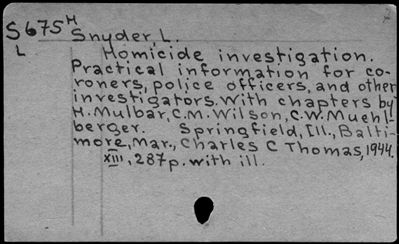 S675H Snyder, L.
L. Homicide investigation.
Practical information for co-
roners, police officers, and other
investigators. With chapters by
H. Mulbar, C.M. Wilson, C.W. Muehl-
berger. Springfield, Ill., Balti-
more, Mar., Charles C Thomas, 1944.
XIII, 287p. with ill.